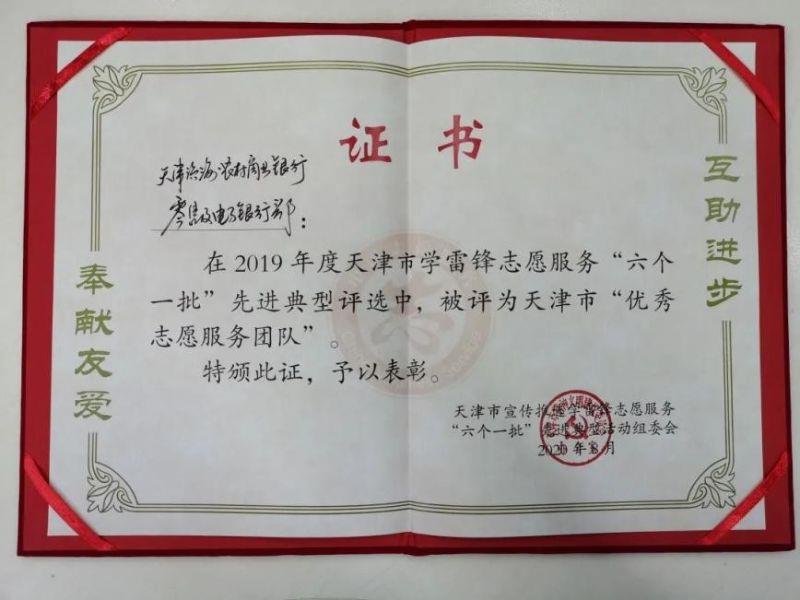 证书
天津滨海农村商业银行
零售及电子银行部：
在2019年度天津市学雷锋志愿服务“六个
一批”先进典型评选中，被评为天津市“优秀
志愿服务团队”。
特颁此证，予以表彰。
天津市宣传推选学雷锋志愿服务
“六个一批”先进典型活动组委会
2020年8月
奉献友爱
互助进步